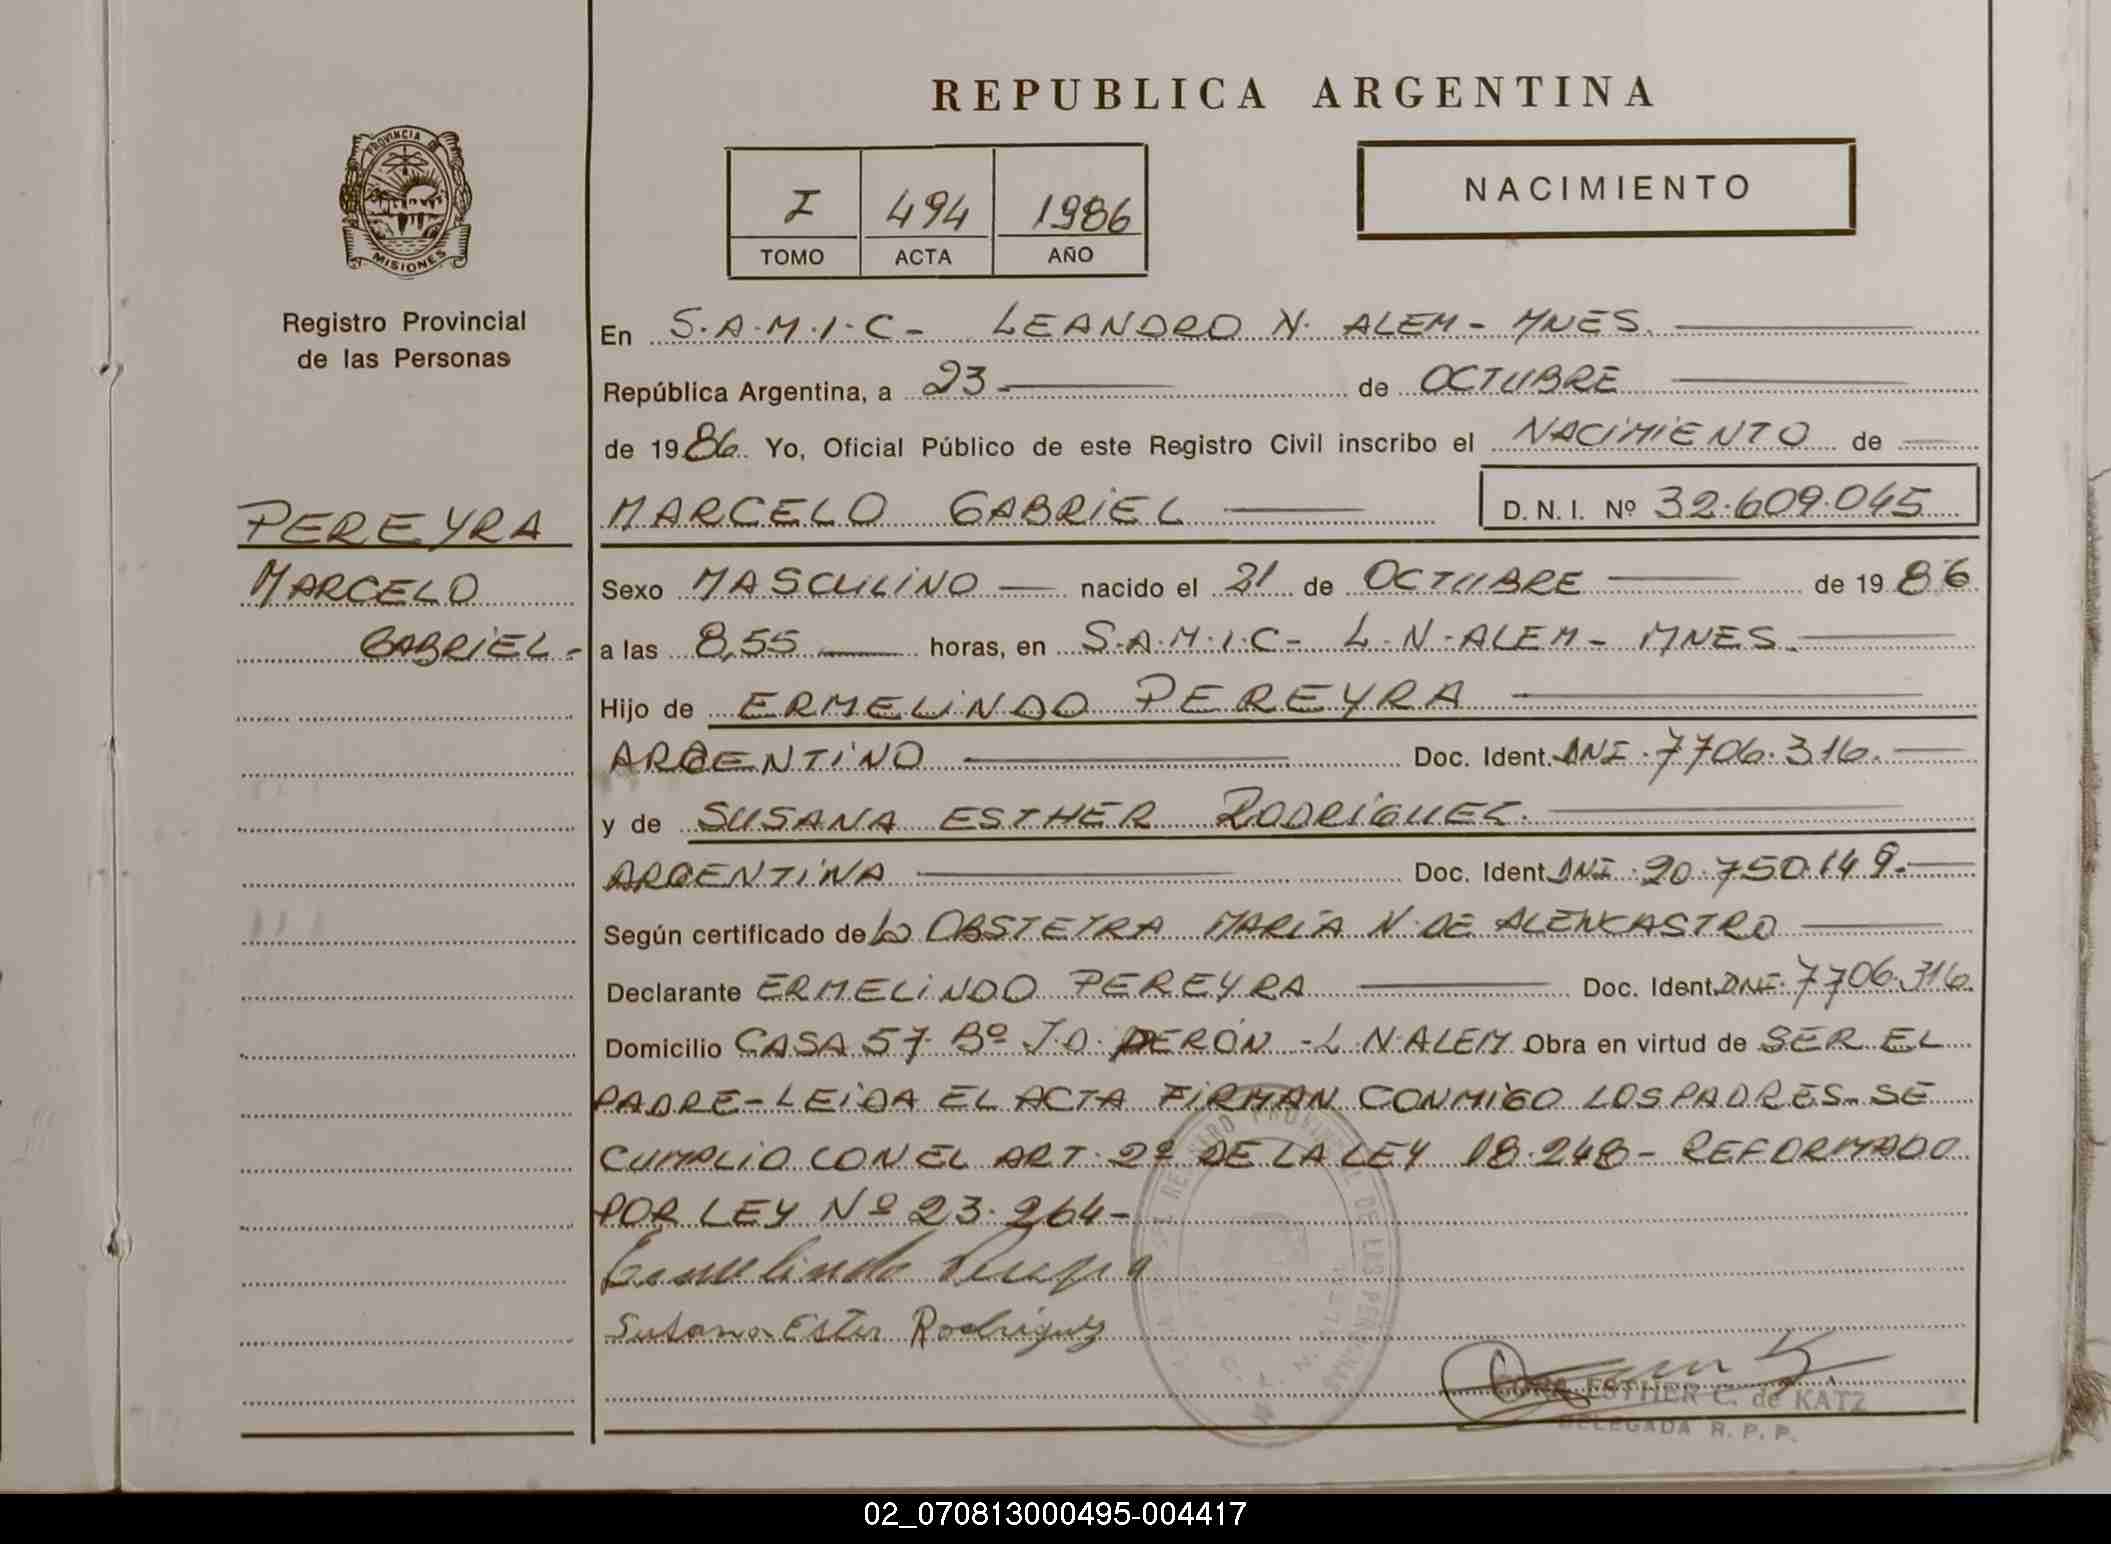 REPUBLICA ARGENTINA
PROVINCIA DE
MISIONES
Registro Provincial
de las Personas
I 494 1986
TOMO ACTA AÑO
NACIMIENTO
En S.A.M.I.C- LEANDRO N. ALEM - MNES.
República Argentina, a 23 de OCTUBRE
de 1986. Yo, Oficial Público de este Registro Civil inscribo el NACIMIENTO de
PEREYRA
MARCELO
GABRIEL-
MARCELO GABRIEL D.N.I. Nº 32.609.045
Sexo MASCULINO nacido el 21 de OCTUBRE de 1986
a las 8,55 horas, en S.A.M.I.C- L.N.ALEM- MNES.
Hijo de ERMELINDO PEREYRA
ARGENTINO Doc. Ident. DNI.7706.316.
y de SUSANA ESTHER RODRIGUEZ.
ARGENTINA Doc. Ident. DNI.20.750.149.
Según certificado de LA OBSTETRA MARIA N. DE ALENCASTRO
Declarante ERMELINDO PEREYRA Doc. Ident. DNI.7706.316.
Domicilio CASA 57- Bº J.D. PERON - L N.ALEM Obra en virtud de SER EL
PADRE- LEIDA EL ACTA FIRMAN CONMIGO LOS PADRES- SE
CUMPLIO CON EL ART. 2º DE LA LEY 18.248- REFORMADO
POR LEY Nº 23.264-
Ermelindo Pereyra
Susana Ester Rodriguez
ESTHER C. de KATZ
DELEGADA R. P. P.
02_070813000495-004417